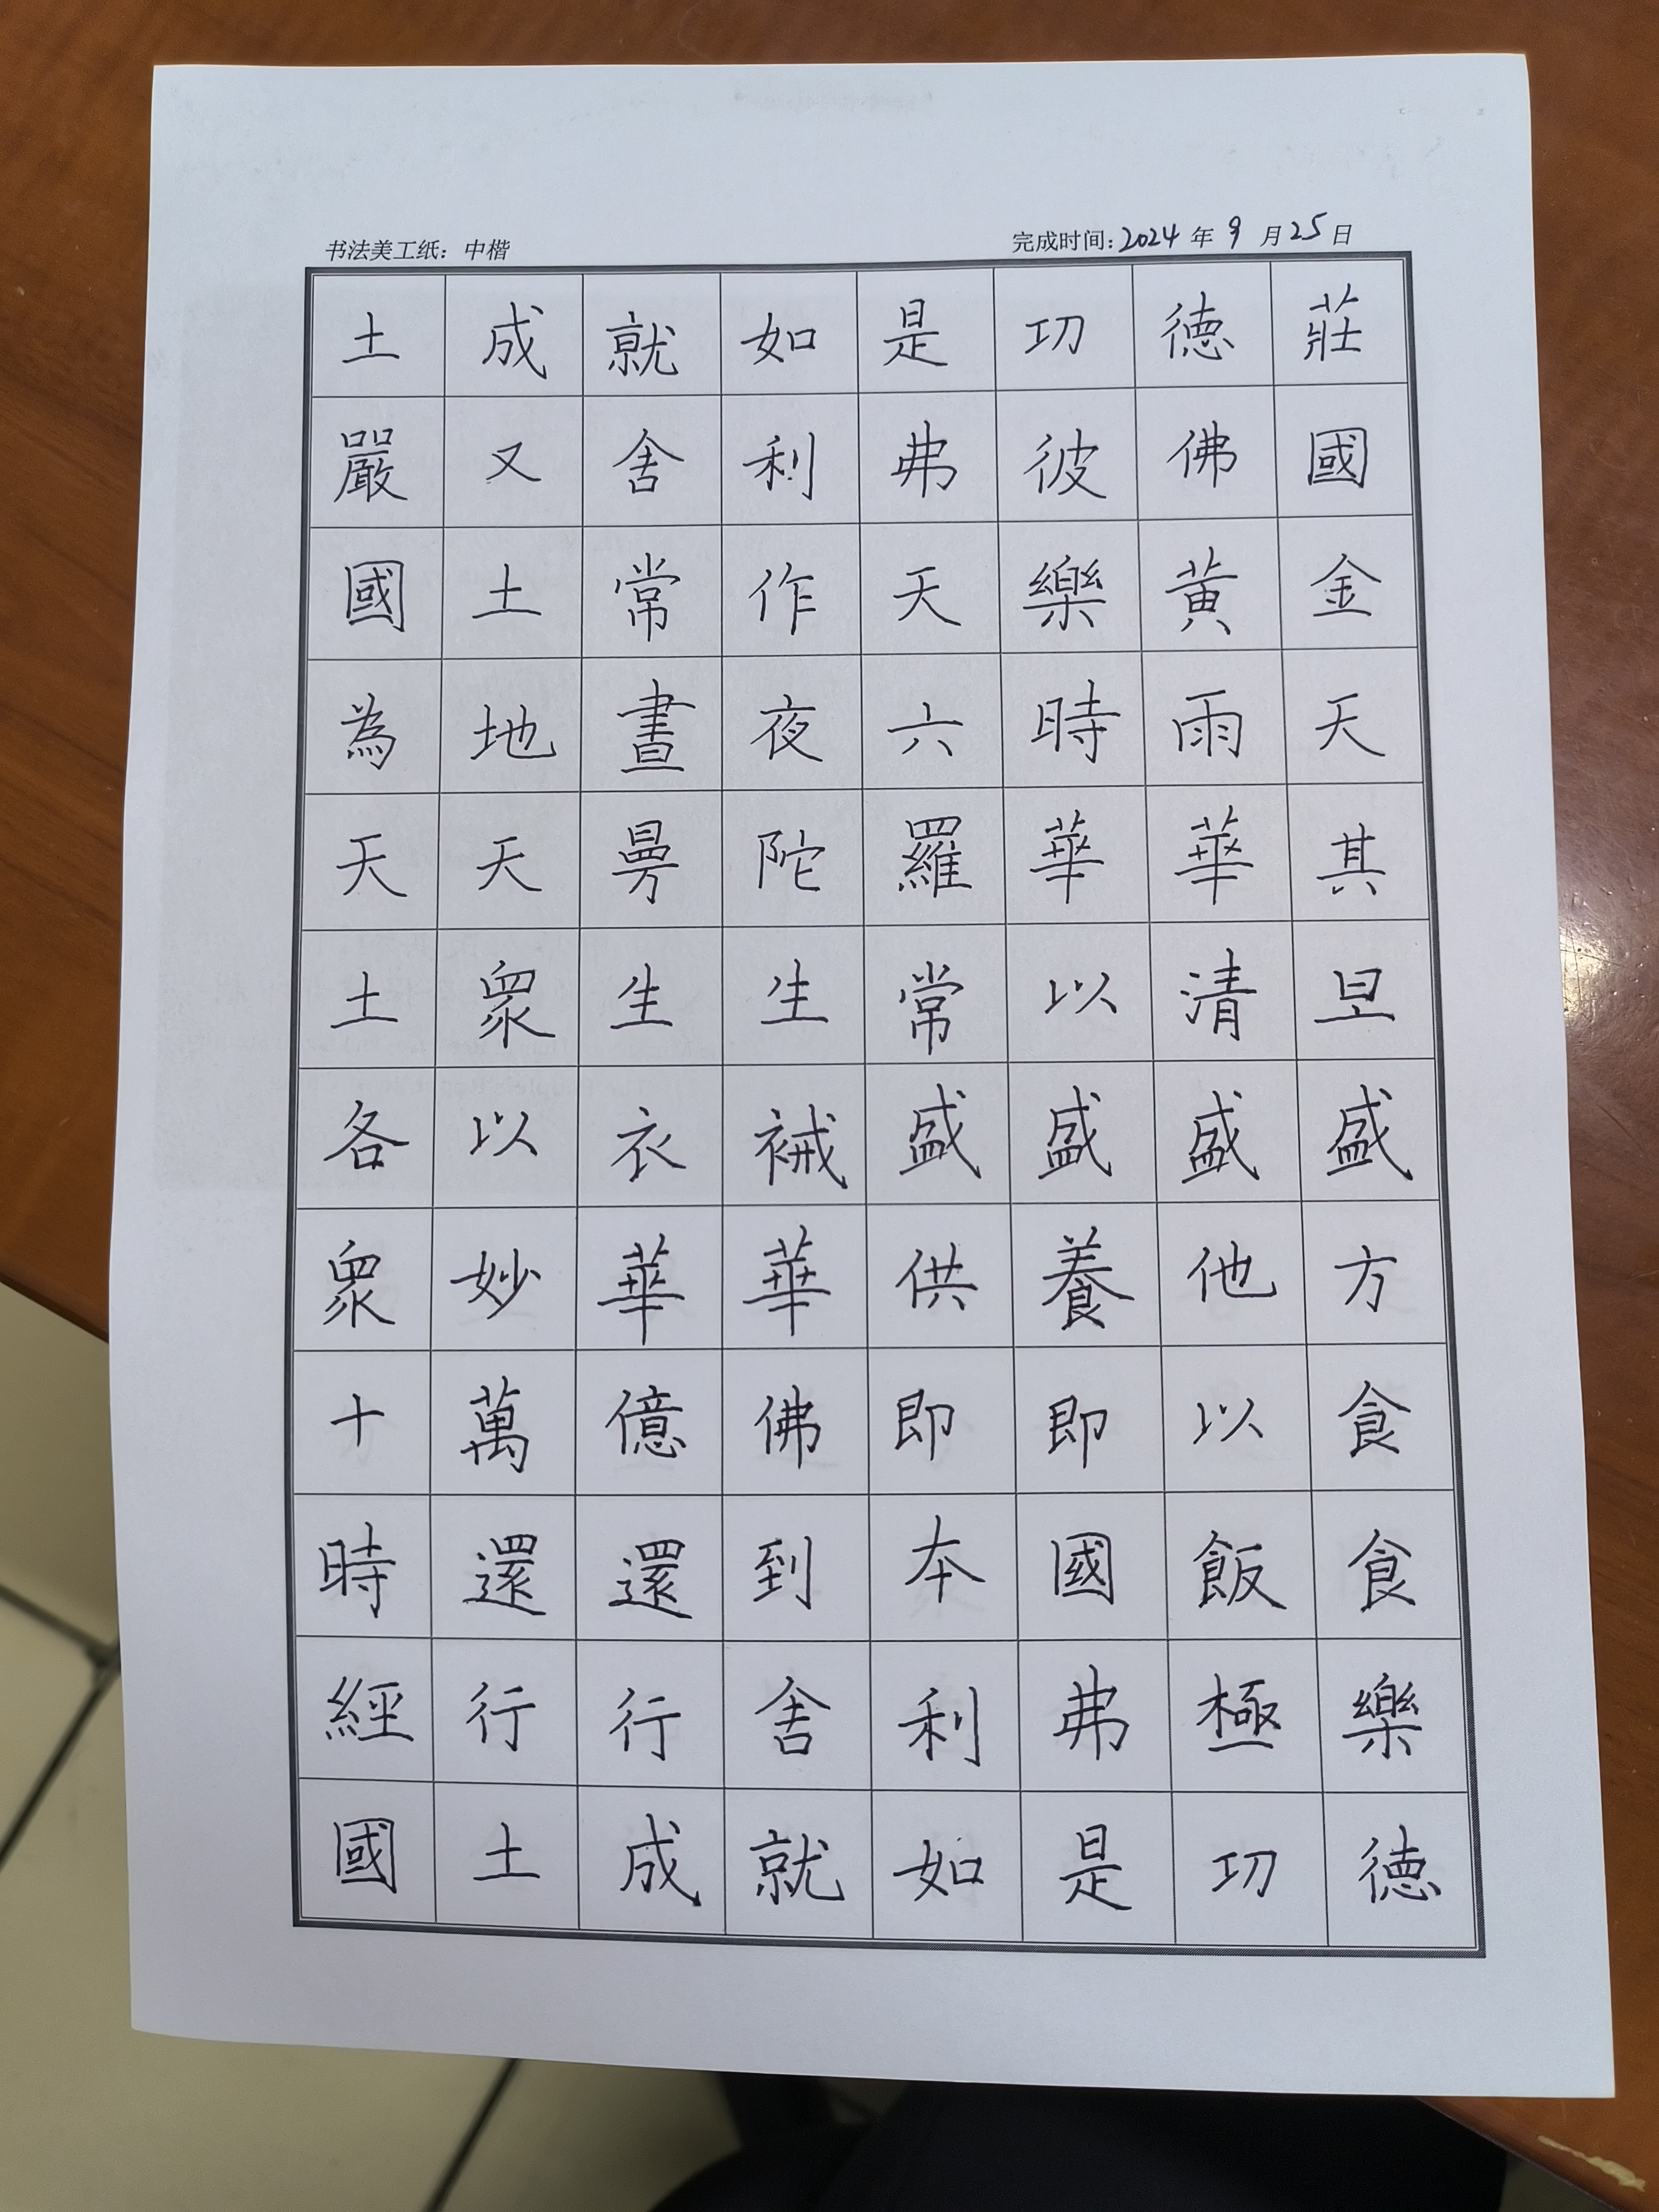 书法美工纸：中楷
完成时间：2024年9月25日
土成就如是功德莊
嚴又舍利弗彼佛國
國土常作天樂黃金
為地晝夜六時雨天
天天曼陀羅華華其
土眾生生常以清旦
各以衣裓盛盛盛盛
眾妙華華供養他方
十萬億佛即即以食
時還還到本國飯食
經行行舍利弗極樂
國土成就如是功德